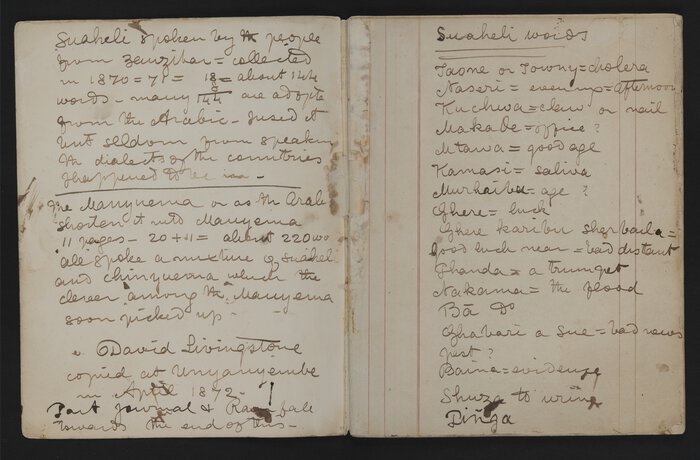 Suaheli spoken by the people
from Zanzibar = collected
in 1870=71 = 18 = about 144
8
words - many 144 are adopte
from the Arabic - I used it
but seldom from speaking
the dialects of the countries
I happened to be in -
The Manyuema or as the Arabs
shorten it into Manyema
11 pages - 20 + 11 = about 220 wo
all spoke a mixture of Suaheli
and chinyuema which the
clever among the Manyema
soon picked up -
David Livingstone
copied at Unyanyembe
in April 1872 -
Part Journal & Rainfall
towards the end of this -
Suaheli words
Taone or Towny = cholera
Naseri = evening = afternoon
Kuchwa = claw or nail
Makabe = office ?
Mtawa = good age
Kamasi = saliva
Murhaibu = age ?
Ghere = luck
Ghere karibu sher baida =
good luck near = bad distant
Phanda = a trumpet
Nakama = the flood
Bā Do
Ghabari a sue = bad news
pest ?
Baina = evidence
Shuza to urine
Pinga